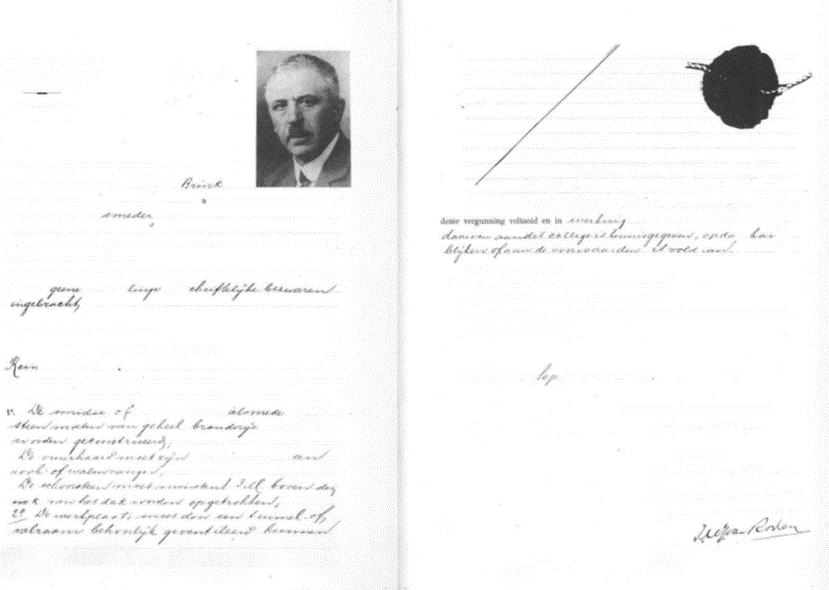 Brink
smeder,
geene chriftelijke bezwaren
ingebracht,
Rein
1º. De of alsmede
steen maken van geheel brandvrije
worden geconstrueerd;
De vuurhaard moet zijn een
rook- of walmvanger,
De schoorsteen moet minstens 3 M. boven de
nok van het dak worden opgetrokken,
2º De werkplaats moet door een tuimel- of
valraam behoorlijk geventileerd kunnen
dezer vergunning voltooid en in werking
daarvan aan dit college is kennisgegeven, opda kan
blijken of aan de voorwaarden is voldaan.
Sep